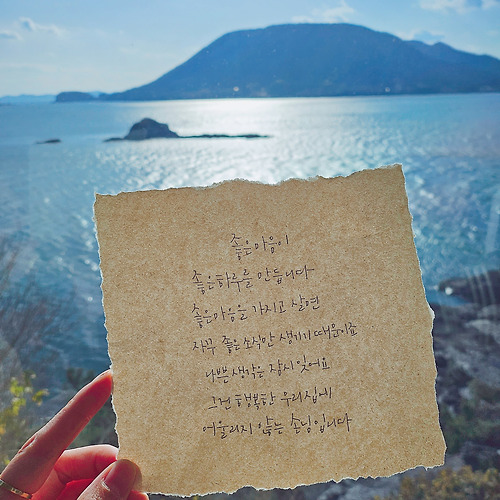 좋은마음이
좋은하루를 만듭니다
좋은마음을 가지고 살면
자꾸 좋은 소식만 생기기 때문이죠
나쁜 생각은 잠시 잊어요
그건 행복한 우리집에
어울리지 않는 손님입니다